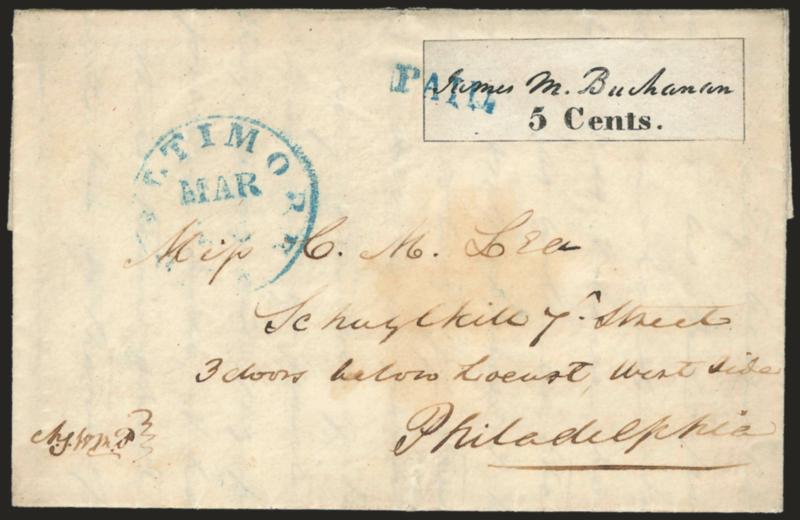 PAID
James M. Buchanan
5 Cents.
BALTIMORE
MAR
Miss C. M. Lea
Schuylkill 7th Street
3 doors below Locust, West side
Philadelphia